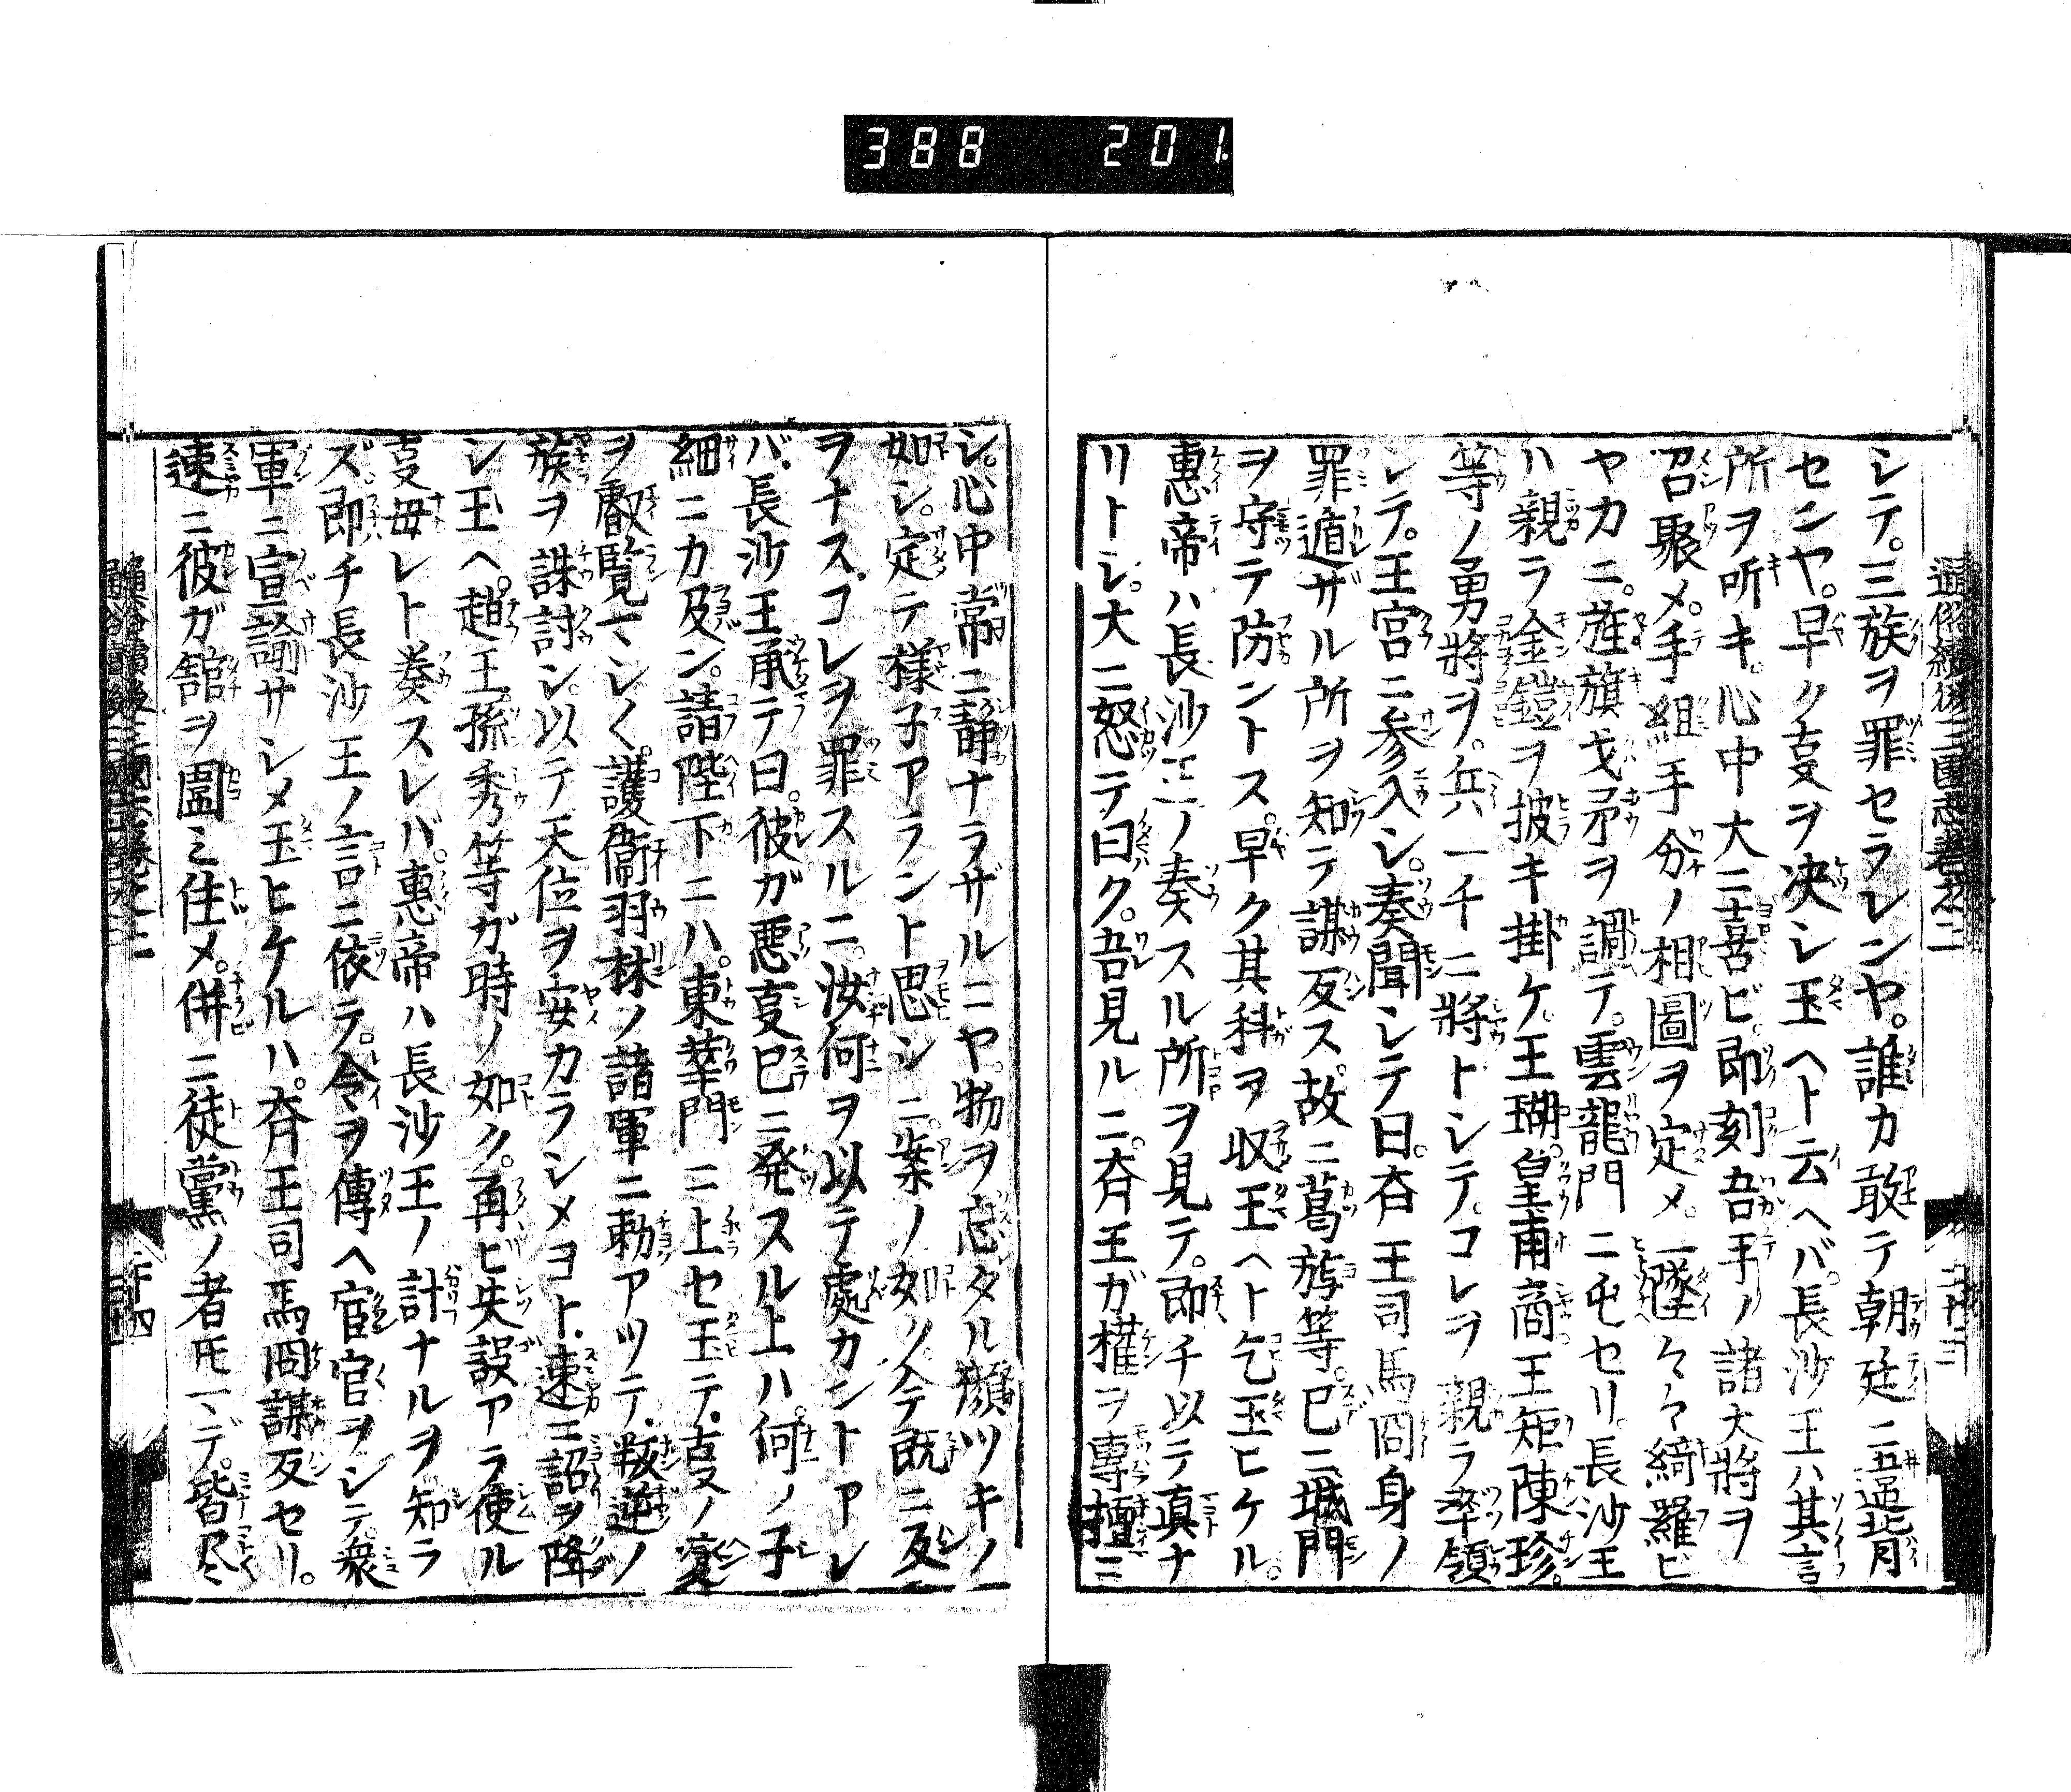 388 201
通俗續後三國志卷之二
シテ。三族ヲ罪セラレンヤ。誰カ敢テ朝廷ニ違背
センヤ。早ク叓ヲ决シ玉ヘト云ヘバ。長沙王ハ其言
所ヲ听キ。心中大ニ喜ビ。即刻吾手ノ諸大將ヲ
召聚メ。手組手分ノ相圖ヲ定メ。一隊々々綺羅ビ
ヤカニ。旌旗戈矛ヲ調テ。雲龍門ニ屯セリ。長沙王
ハ親ラ金鎧ヲ披キ掛ケ。王瑚。皇甫商。王矩。陳珍。
等ノ勇將ヲ。兵一千ニ將トシテ。コレヲ親ラ率領
シテ。王宮ニ参入シ。奏聞シテ曰。斉王司馬冏身ノ
罪遁ザル所ヲ知テ謀反ス。故ニ葛旟等。已ニ城門
ヲ守テ防ントス。早ク其科ヲ収玉ヘト乞玉ヒケル。
惠帝ハ長沙王ノ奏スル所ヲ見テ。即チ以テ真ナ
リトシ。大ニ怒テ曰ク。吾見ルニ。斉王ガ權ヲ專擅ニ
シ。心中常ニ靜ナラザルニヤ。物ヲ忘タル顏ツキノ
如シ。定テ様子アラント思シニ。案ノ如ク今既ニ反
ヲナス。コレヲ罪スルニ。汝何ヲ以テ處カントアレ
バ。長沙王承テ曰。彼ガ悪叓已ニ発スル上ハ。何ノ子
細ニカ及ン。請陛下ニハ。東華門ニ上セ玉テ。叓ノ変
ヲ叡覧マシ〱。護衞羽林ノ諸軍ニ勅アツテ。叛逆ノ
族ヲ誅討シ。以テ天位ヲ安カラシメヨト。速ニ詔ヲ降
シ玉ヘ。趙王孫秀等ガ時ノ如ク。再ビ失誤アラ使ル
叓毋レト奏スレバ。惠帝ハ長沙王ノ計ナルヲ知ラ
ズ。即チ長沙王ノ言ニ依テ。令ヲ傳ヘ宦官ヲシテ。衆
軍ニ宣諭サシメ玉ヒケルハ。斉王司馬冏謀反セリ。
速ニ彼ガ舘ヲ圍ミ住メ。併ニ徒黨ノ者𪜈マデ。皆尽ミ